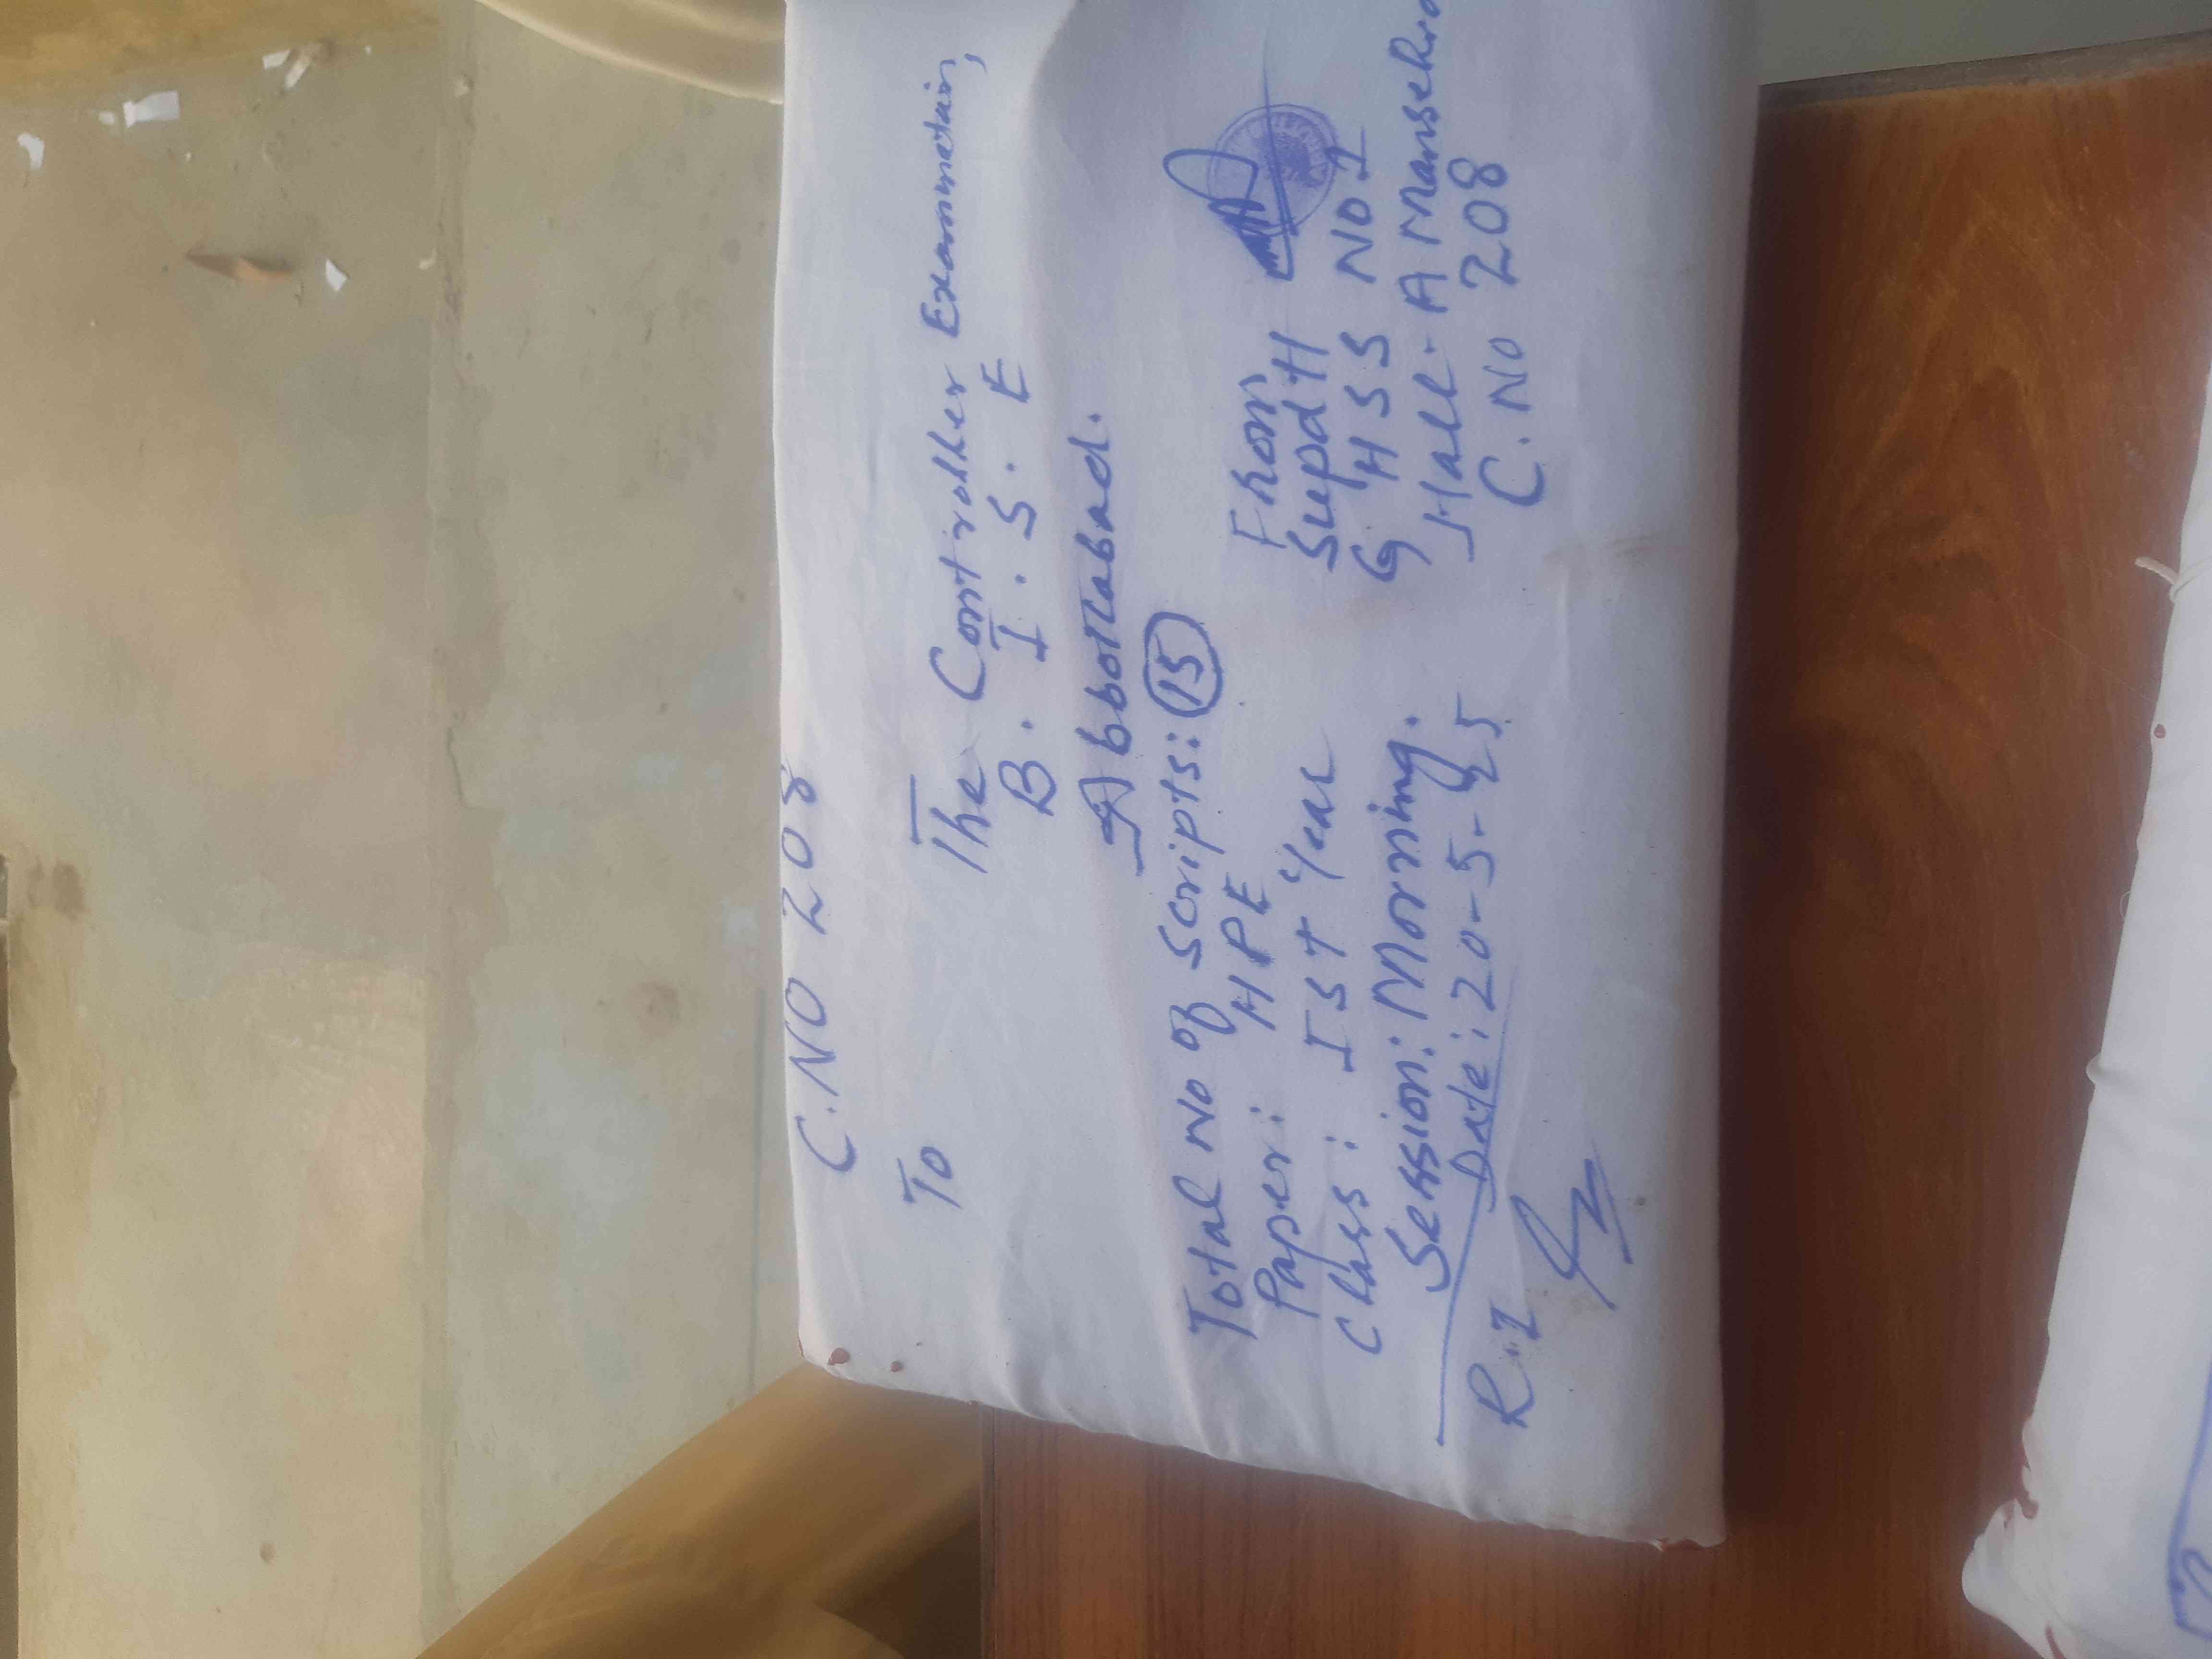 C.NO 208
To
The Controller Examination,
B. I. S. E
Abbottabad.
Total No of Scripts: 15
Paper: HPE
Class: Ist Year
Session: Morning.
Date: 20-5-25
From
Supdtt
GHSS NO 1
Hall-A Mansehra
C. No 208
R.I